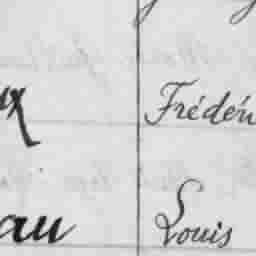 ux Frédéri
au Louis